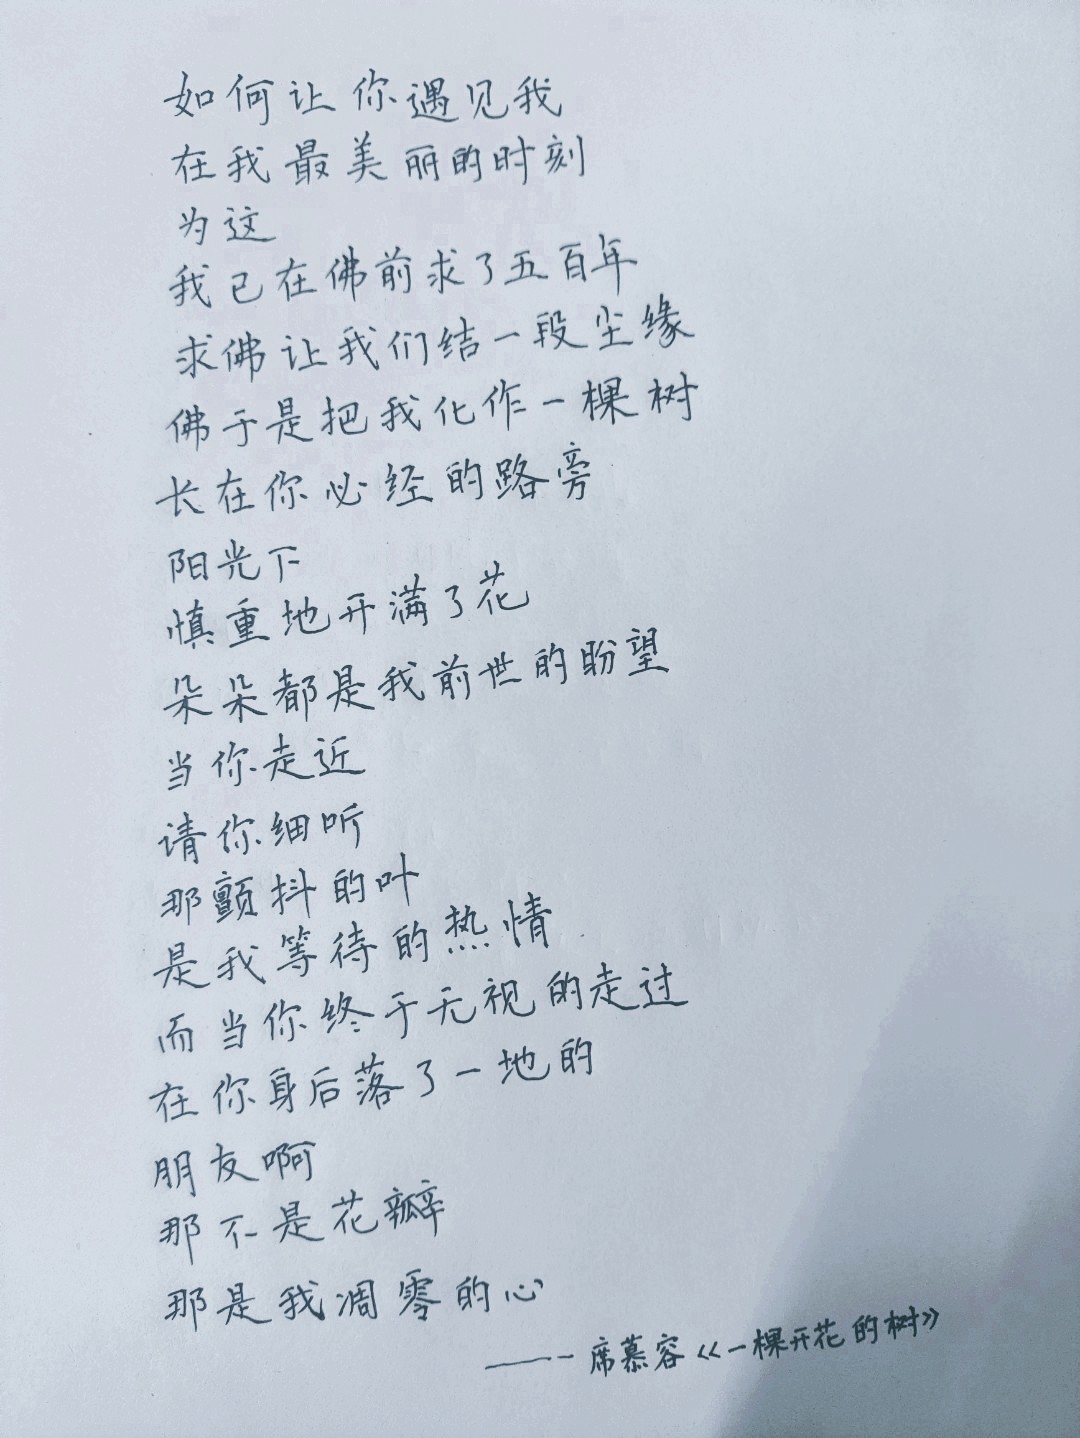 如何让你遇见我
在我最美丽的时刻
为这
我已在佛前求了五百年
求佛让我们结一段尘缘
佛于是把我化作一棵树
长在你必经的路旁
阳光下
慎重地开满了花
朵朵都是我前世的盼望
当你走近
请你细听
那颤抖的叶
是我等待的热情
而当你终于无视的走过
在你身后落了一地的
朋友啊
那不是花瓣
那是我凋零的心
——席慕容《一棵开花的树》